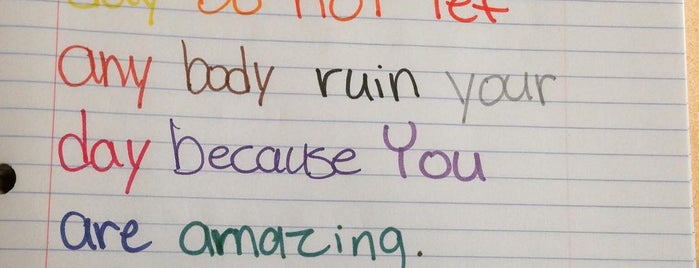 day do not let
any body ruin your
day because You
are amazing.